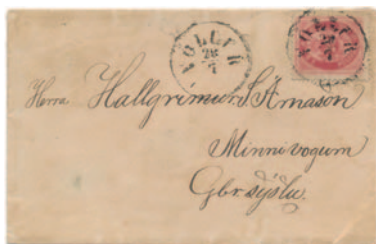 VOLLUR
28
7
VOLLUR
28
7
Herra Hallgrimur S Arnason
Minnivogum
Gbr. sýslu.